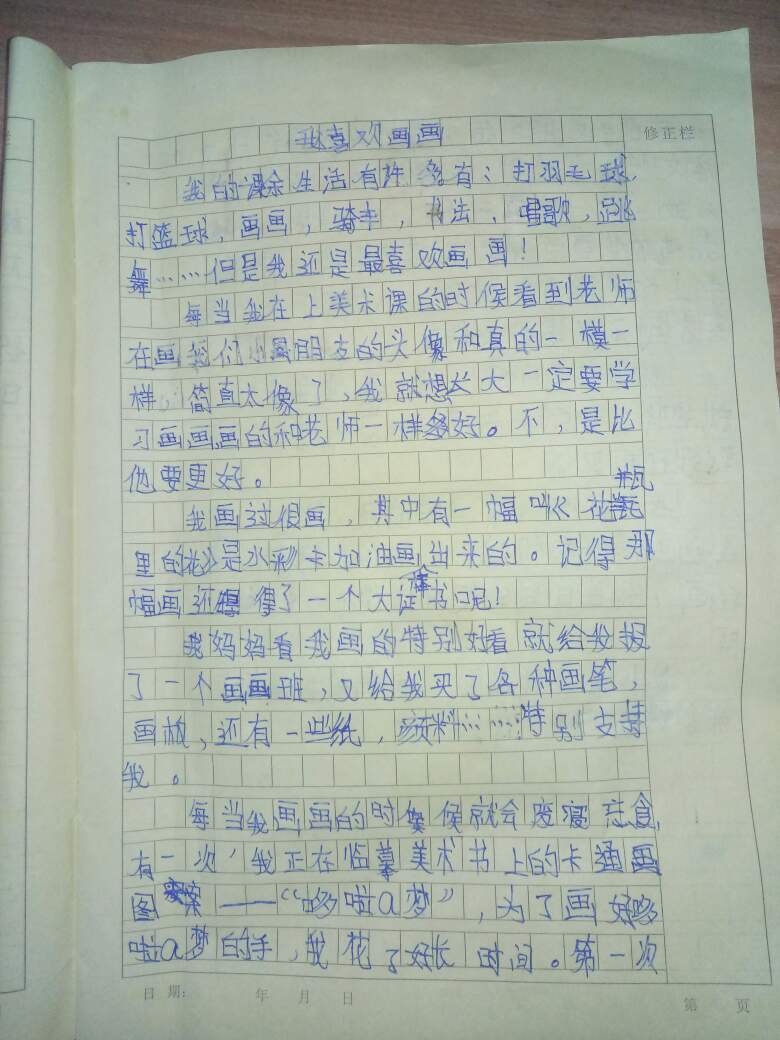 我喜欢画画
修正栏
我的课余生活有许多有：打羽毛球，
打篮球，画画，骑车，书法，唱歌，跳
舞……但是我还是最喜欢画画！
每当我在上美术课的时候看到老师
在画我们小朋友的头像和真的一模一
样，简直太像了，我就想长大一定要学
习画画画的和老师一样好。不，是比
他要更好。
我画过很画，其中有一幅叫《花瓶
里的花》是水彩卡加油画出来的。记得那
幅画还得了一个大证书呢！
我妈妈看我画的特别好看就给我报
了一个画画班，又给我买了各种画笔，
画板，还有一些纸，颜料……特别支持
我。
每当我画画的时候就会废寝忘食，
有一次，我正在临摹美术书上的卡通画
图案——“哆啦a梦”，为了画好哆
啦a梦的手，我花了好长时间。第一次
日 期: 年 月 日 第 页